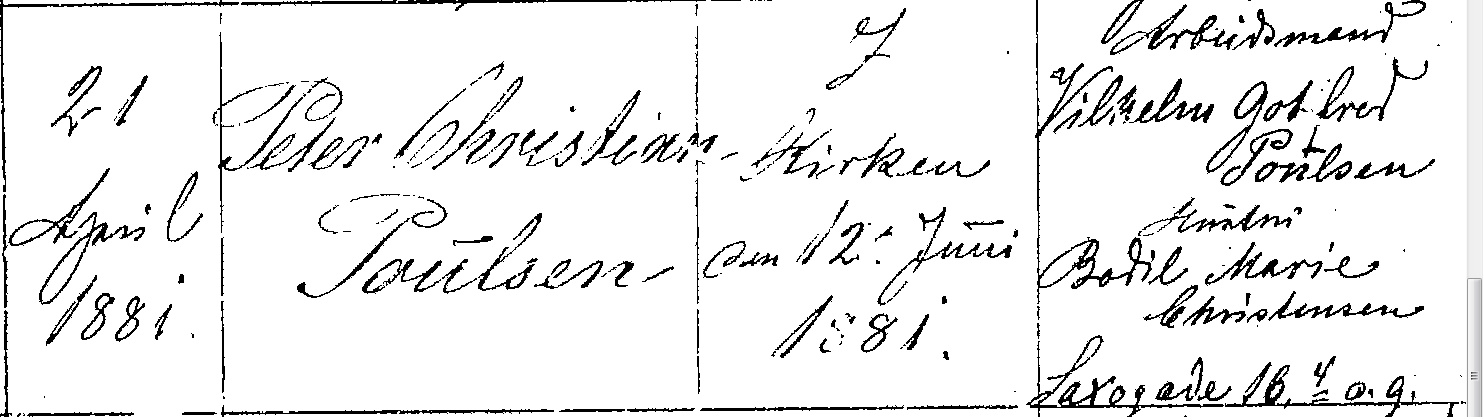 21
April
1881.
Peter Christian
Poulsen
I
Kirken
den 12. Juni
1881.
Arbeidsmand
Vilhelm Gotfred
Poulsen
Hustru
Bodil Marie
Christensen
Saxogade 16, 4 o. g.